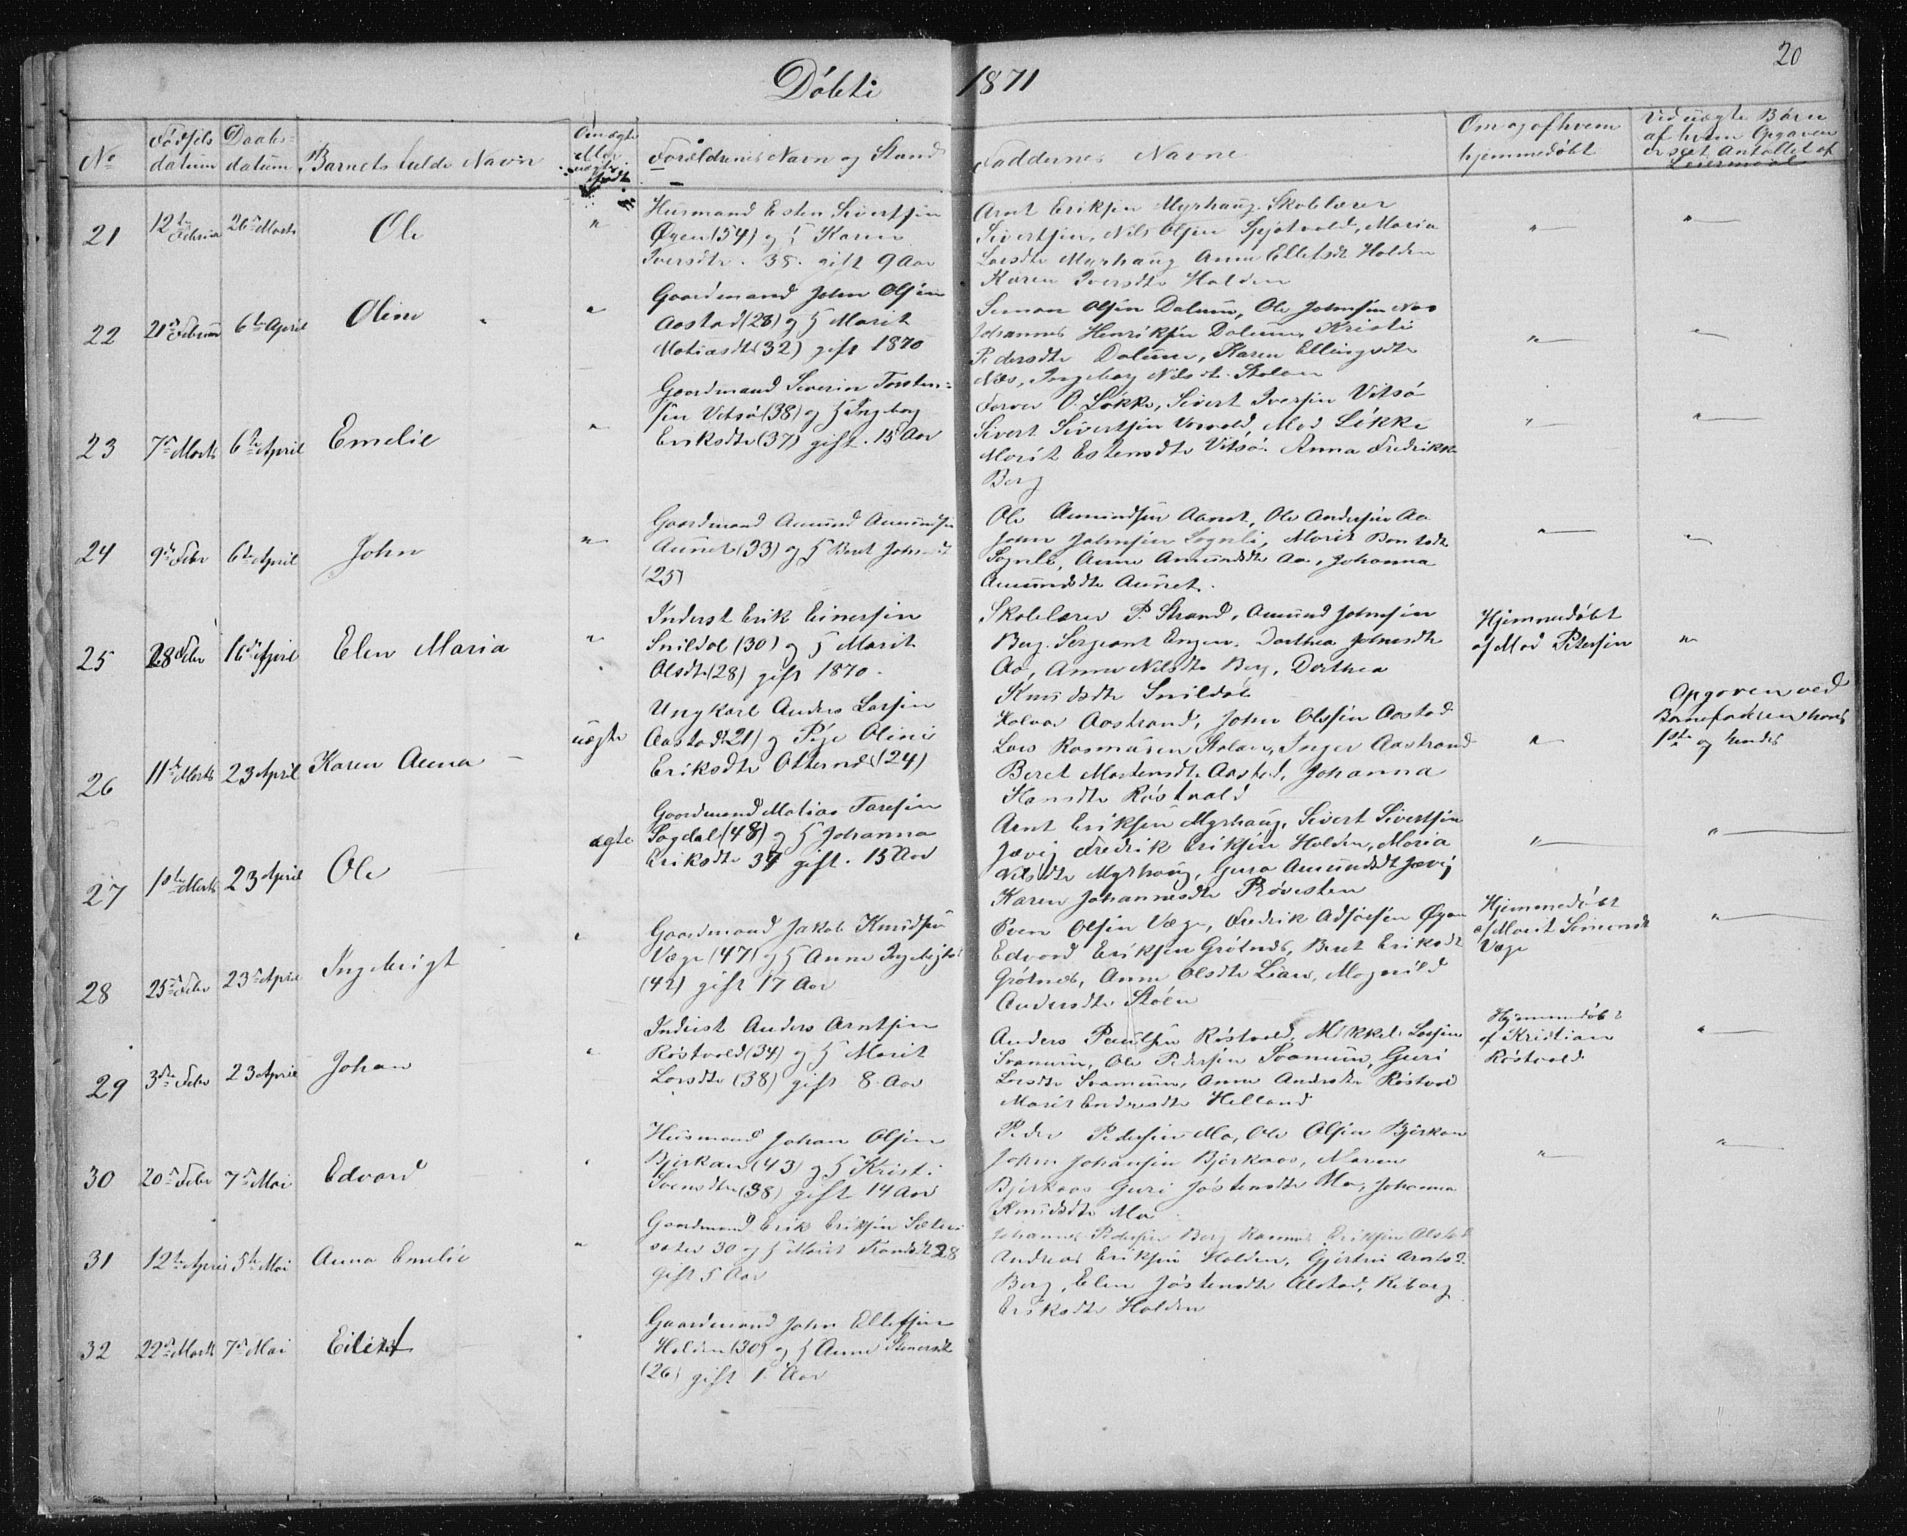 20
Döbte 1871
No
Födsels
datum
Daabs-
datum
Barnets fulde Navn
Om ægte
eller
uægte
födt
Forældrenes Navn og Stand
Faddernes Navne
Om og af hvem
hjemmedöbt
Ved uægte Börn
af hvem Opgaven
er skeet, Antallet af
Leiermaal
21
12te Februar
26de Marts
Ole
"
Husmand Esten Sivertsen
Öyen (54) og H Karen
Iversdtr. 38. gift 9 Aar
Arnt Eriksen Myrhaug. Skolelærer
Sivertsen, Nils Olsen Spjötvold, Maria
Larsdtr Myrhaug Anne Ellefsdt Holden
Karen Iversdtr Holden
"
"
22
21de Februar
6te April
Oline
"
Gaardmand John Olsen
Aastad (28) og H Marit
Matiasdtr (32) gift 1870
Simon Olsen Dalum, Ole Johnsen Næs
Johannes Henriksen Dalum, Kristi
Pedersdtr Dalum, Karen Ellingsdtr
Næs, Ingeborg Nilsdt. Stolan
"
"
23
7de Marts
6te April
Emelie
"
Gaardmand Severin Torsten-
sen Vitsö (38) og H Ingebog
Eriksdtr (37) gift. 15 Aar
Farver O. Lökke, Sivert Iversen Vitsö
Sivert Sivertsen Vorvold, Mad Lökke
Marit Estensdtr Vitsö. Anna Fredrikke
Berg
"
"
24
9de Febr
6te April
John
"
Gaardmand Amund Amundsen
Aunet (33) og H Beret Johnsdt
(25)
Ole Amundsen Aunet, Ole Andersen Aa
John Johnsen Sognli, Marit Bentsdtr
Sognli, Anne Amundsdtr Aa, Johanna
Amundsdtr Aunet.
"
"
25
28de Febr
16de April
Elen Maria
"
Inderst Erik Einersen
Snildal (30) og H Marit
Olsdtr (28) gift 1870.
Skolelærer P. Strand, Amund Johnsen
Berg. Sergeant Engen. Dorthea Johnsdtr
Aa, Anne Nilsdtr Berg, Dorthea
Knudsdtr Snildal
Hjemmedöbt
af Mad Petersen
"
26
11te Marts
23 April
Karen Anna
uægte
Ungkarl Anders Larsen
Aastad (21) og Pige Oline
Eriksdtr Otternes (24)
Halvor Aastrand, John Olssen Aastad
Lars Rasmusen Stolan, Inger Aastrand
Beret Mortensdtr Aastad, Johanna
Hansdtr Röstvold
"
Opgaven ved
Barnefaderen hans
1ste og hendes
27
1ste Marts
23 April
Ole
ægte
Gaardmand Matias Taresen
Sagdal (48) og H Johanna
Eriksdtr 37 gift. 15 Aar
Arnt Eriksen Myrhaug, Sivert Sivertsen
Jævig Fredrik Eriksen Holden, Maria
Nilsdtr Myrhaug, Guro Amundsdt Jævig
Karen Johannesdtr Prövesten
"
"
28
25de Febr
23de April
Ingebrigt
"
Gaardmand Jakob Knudsen
Væge (47) og H Anne Ingebrigtsd
(42) gift 17 Aar
Even Olsen Væge, Fredrik Adsersen Öyan
Edvard Eriksen Grötnes, Beret Eriksdt
Grötnes, Anne Olsdtr Lian, Magnild
Andersdtr Stölen
Hjemmedöbt
af Marit Simonsdt
Væge
"
29
3die Febr
23 April
Johan
"
Inderst Anders Arntsen
Röstvold (34) og H Marit
Larsdtr (38) gift 8 Aar
Anders Paulsen Röstvold, Mikkel Larsen
Svanum, Ole Pedersen Svanum, Guri
Larsdtr Svanum, Anne Andrsdtr Röstvold
Marit Endresdtr Helland
Hjemmedöbt
af Kristian
Röstvold
"
30
20de Febr
7de Mai
Edvard
"
Husmand Johan Olsen
Björkan (43) og H Kristi
Svensdtr (38) gift 14 Aar
Peder Pedersen Mo, Ole Olsen Björkan
John Johansen Björkaas, Maren
Björkaas Guri Jöstensdtr Mo, Johanna
Knudsdtr Mo
"
"
31
12te April
5te Mai
Anna Emelie
"
Gaardmand Erik Eriksen Sæter-
sæter 30 og H Marit 28
gift 5 Aar
Johannes Pedersen Berg Rasmus Eriksen Alstad
Andreas Eriksen Holden, Gjertrud Arntsd.
Berg, Elen Jöstensdtr Alstad, Reborg
Eriksdtr Holden
32
22de Marts
7de Mai
Eilert
"
Gaardmand John Ellefsen
Holden (30) og H Anne Steinersdtr
(26) gift 1. Aar